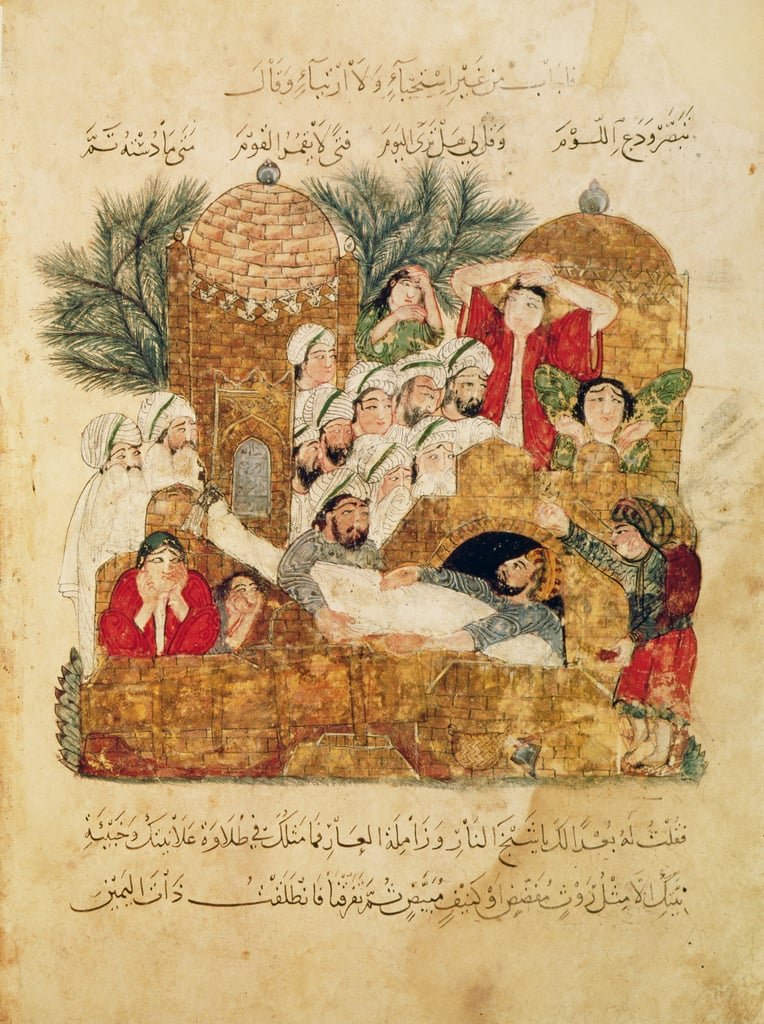 فاجاب من غير استحيآء ولا ارتيآء وقال
تبصر ودع اللوم وقل لي هل ترى اليوم فتى لا يقمر القوم متى ما دسته تم
فقلت له بعدا لك يا شيخ النار وزاملة العار فما مثلك في طلاوة علانيتك
نيتك الا مثل روث مفضض او كنيف مبيض ثم تفرقنا فانطلقت ذات اليمين